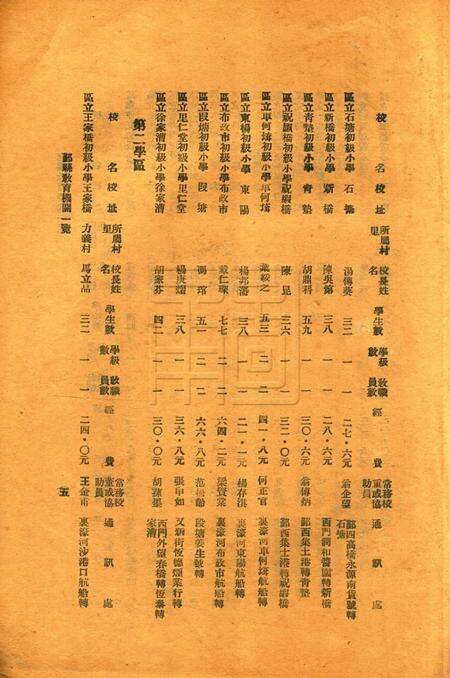 校名 校址 所屬村里 校長姓名 學生數 學級數 教職員數 經費 常務校董或協助員 通訊處
區立石塘初級小學 石塘 湯傳英 三二 一 一 二七·六元 翁企望 鄞西高橋永源南貨號轉石塘
區立新橋初級小學 新橋 陳吳錦 三八 一 一 二八·六元 西門洞和醬園轉新橋
區立青墊初級小學 青墊 胡鼎科 五九 一 一 三〇·六元 翁傳炳 鄞西集士港轉青墊
區立祝家橋初級小學 祝家橋 陳 三六 一 一 三二·〇元 鄞西集士港轉祝家橋
區立車何埭初級小學 車何埭 之 五三 二 二 四一·八元 何正官 裏濠河車何埭航船轉
區立東楊初級小學 東陽 楊邦藩 三八 一 一 二一·一元 楊存淇 裏濠河東陽航船轉
區立布政市初級小學 布政市 戴仁 七七 二 二 六四·二元 梁賢 裏濠河布政市航船轉
區立段塘初級小學 段塘 馮 五一 二 二 六六·八元 范 段塘姜生號轉
區立里仁堂初級小學 里仁堂 楊庚 三八 一 一 三六·八元 張申如 又新街恆德烟葉行轉
區立徐家漕初級小學 徐家漕 胡家芬 四二 一 一 三〇·〇元 胡 西門外望春橋轉恆泰轉家漕
第二學區
校名 校址 所屬村里 校長姓名 學生數 學級數 教職員數 經費 常務校董或協助員 通訊處
區立王家橋初級小學 王家橋 方義村 馬立品 三二 一 一 二四·〇元 王金甫 裏濠河沙港口航船轉
鄞縣教育機關一覽
五